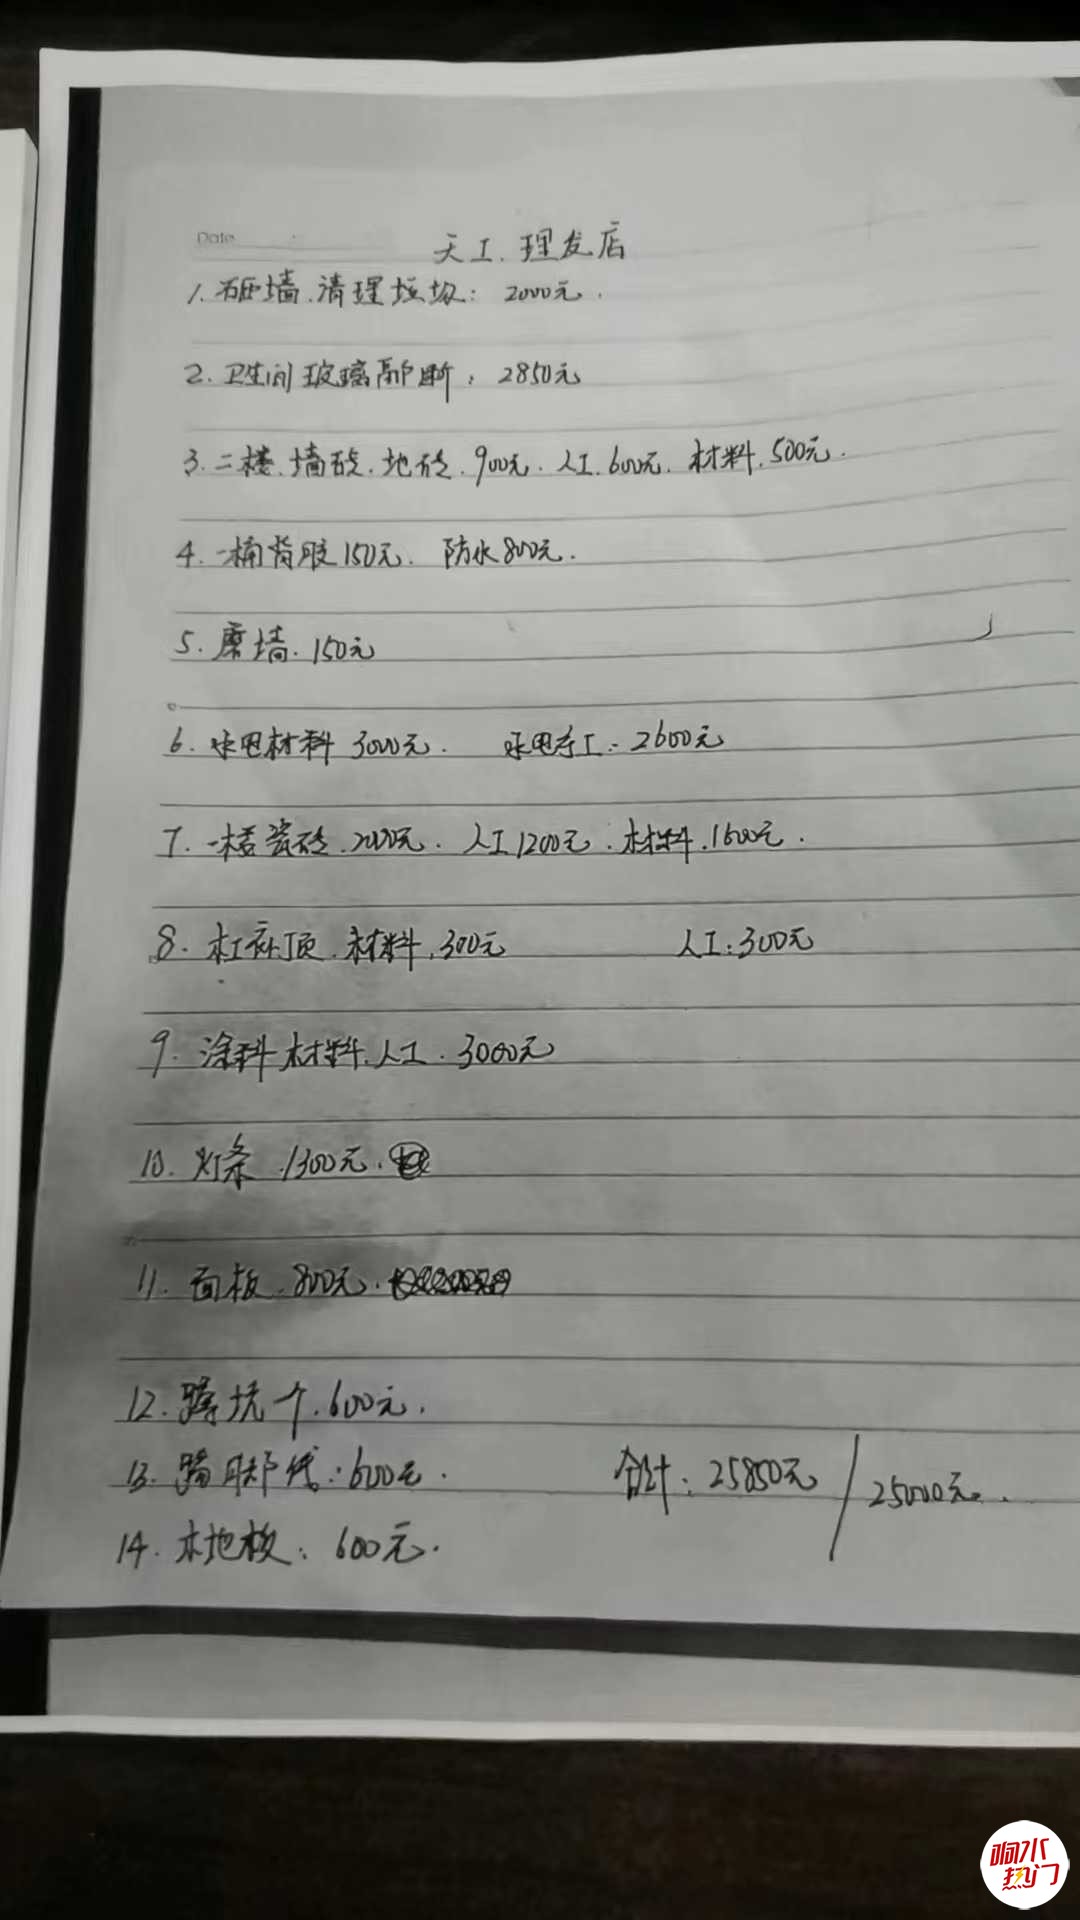 Date
天工.理发店
1.砸墙.清理垃圾：2000元.
2.卫生间玻璃隔断：2850元
3.二楼.墙砖.地砖.900元.人工.600元.材料.500元.
4.一桶背胶150元. 防水800元.
5.磨墙.150元
6.水电材料 3000元. 水电手工：2600元
7.一楼瓷砖.2000元.人工1200元.材料.1600元.
8.木工补顶.材料.300元 人工：300元
9.涂料材料.人工.3000元
10.灯条.1300元.
11.面板.800元.
12.蹲坑一个.600元.
13.踢脚线：600元.
合计：25850元/25000元.
14.木地板：600元.
响水热门